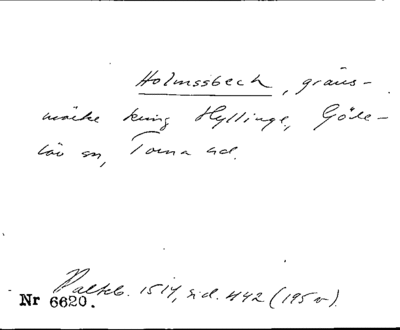 Holmssbech, gräns-
märke kring Hyllinge, Göde-
löv sn, Torna hd.
Palteb. 1514, sid. 442 (195 v).
Nr 6620.